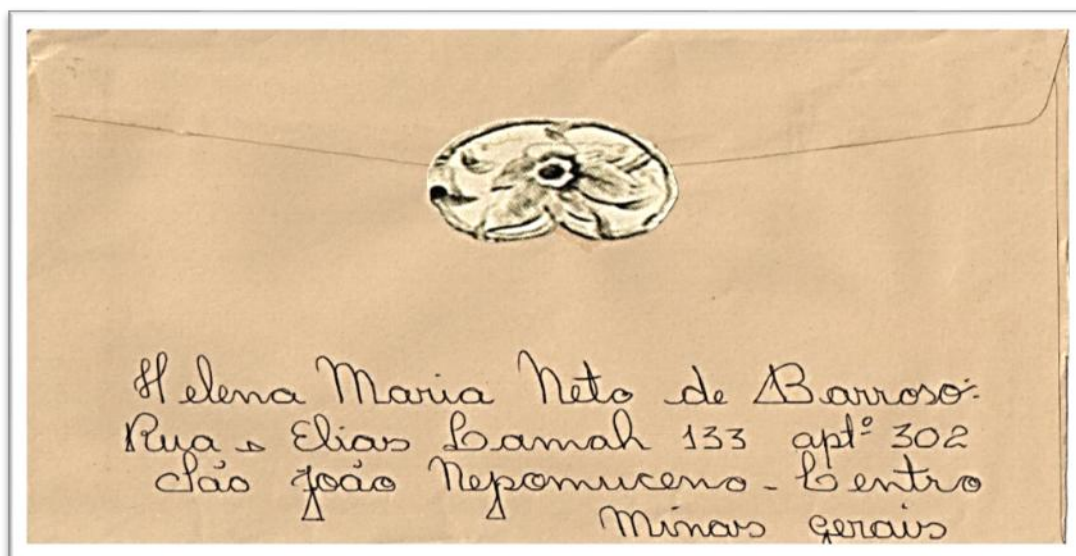 Helena Maria Neto de Barroso:
Rua Elias Camah 133 aptº 302
São João Nepomuceno - Centro
Minas Gerais